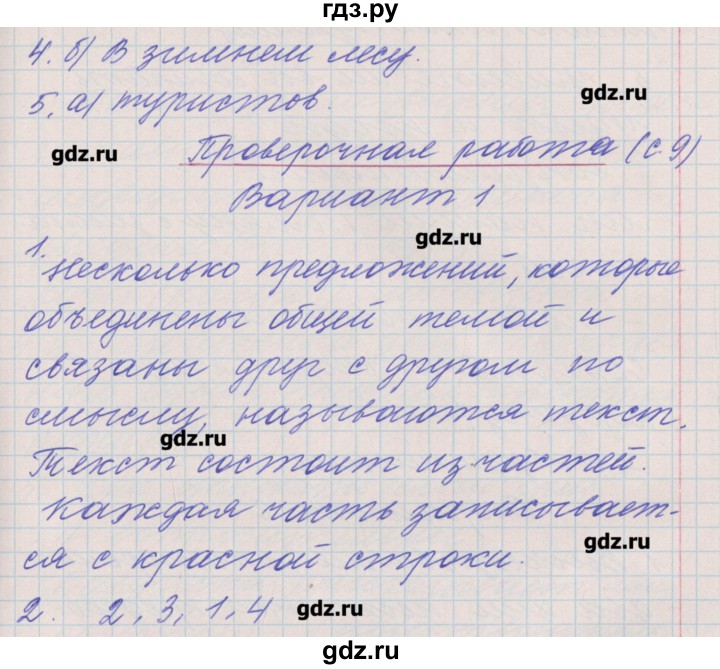 гдз.ру
4. б) В зимнем лесу.
5. а) туристов.
gdz.ru
gdz.ru
Проверочная работа (с. 9)
Вариант 1
gdz.ru
1. Несколько предложений, которые
объединены общей темой и
связаны друг с другом по
смыслу, называются текст.
gdz.ru
Текст состоит из частей.
Каждая часть записывает-
ся с красной строки.
gdz.ru
2. 2, 3, 1, 4
gdz.ru
gdz.ru